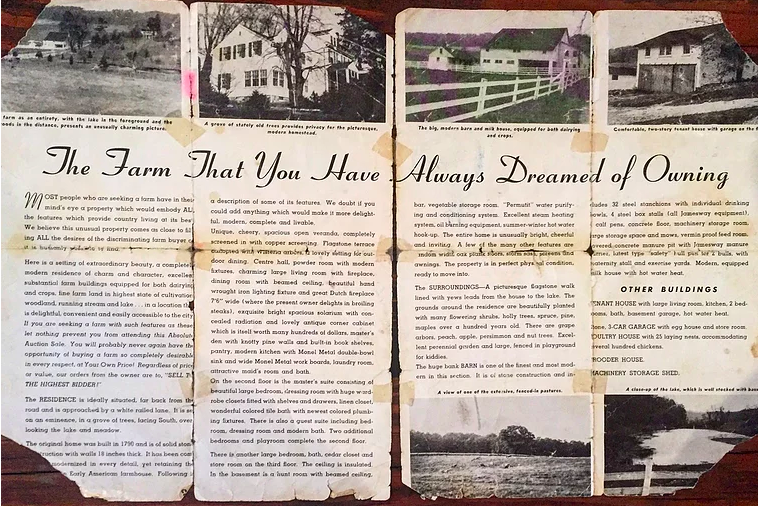 farm as an entirety, with the lake in the foreground and the
woods in the distance, presents an unusually charming picture.
A grove of stately old trees provides privacy for the picturesque,
modern homestead.
The big, modern barn and milk house, equipped for both dairying
and crops.
Comfortable, two-story tenant house with garage on the
The Farm That You Have Always Dreamed of Owning
MOST people who are seeking a farm have in their
mind's eye a property which would embody ALL
the features which provide country living at its best
We believe this unusual property comes as close to
ing ALL the desires of the discriminating farm buyer
it is humanly
Here is a setting of extraordinary beauty, a complete
modern residence of charm and character, excellen
substantial farm buildings equipped for both dairying
and crops, fine farm land in highest state of cultivation
woodland, running stream and lake . . . in a location th
is delightful, convenient and easily accessible to the city
If you are seeking a farm with such features as these
let nothing prevent you from attending this Absolute
Auction Sale. You will probably never again have the
opportunity of buying a farm so completely desirable
in every respect, at Your Own Price! Regardless of price
or value, our orders from the owner are to, "SELL T
THE HIGHEST BIDDER!"
The RESIDENCE is ideally situated, far back from the
road and is approached by a white railed lane. It is set
on an eminence, in a grove of trees, facing South, over
looking the lake and meadow.
The original home was built in 1790 and is of solid stone
truction with walls 18 inches thick. It has been com
modernized in every detail, yet retaining the
Early American farmhouse. Following
a description of some of its features. We doubt if you
could add anything which would make it more delight-
ful, modern, complete and livable.
Unique, cheery, spacious open veranda, completely
screened in with copper screening. Flagstone terrace
canopied with Wisteria arbor, a lovely setting for out-
door dining. Centre hall, powder room with modern
fixtures, charming large living room with fireplace,
dining room with beamed ceiling, beautiful hand
wrought iron lighting fixture and great Dutch fireplace
7'6" wide (where the present owner delights in broiling
steaks), exquisite bright spacious solarium with con-
cealed radiation and lovely antique corner cabinet
which is itself worth many hundreds of dollars, master's
den with knotty pine walls and built-in book shelves,
pantry, modern kitchen with Monel Metal double-bowl
sink and wide Monel Metal work boards, laundry room,
attractive maid's room and bath.
On the second floor is the master's suite consisting of
beautiful large bedroom, dressing room with huge ward-
robe closets fitted with shelves and drawers, linen closet,
wonderful colored tile bath with newest colored plumb-
ing fixtures. There is also a guest suite including bed-
room, dressing room and modern bath. Two additional
bedrooms and playroom complete the second floor.
There is another large bedroom, bath, cedar closet and
store room on the third floor. The ceiling is insulated.
In the basement is a hunt room with beamed ceiling,
bar, vegetable storage room. "Permutit" water purify-
ing and conditioning system. Excellent steam heating
system, oil burning equipment, summer-winter hot water
hook-up. The entire home is unusually bright, cheerful
and inviting. A few of the many other features are
random width oak plank floors, storm sash, screens and
awnings. The property is in perfect physical condition,
ready to move into.
The SURROUNDINGS—A picturesque flagstone walk
lined with yews leads from the house to the lake. The
grounds around the residence are beautifully planted
with many flowering shrubs, holly trees, spruce, pine,
maples over a hundred years old. There are grape
arbors, peach, apple, persimmon and nut trees. Excel-
lent perennial garden and large, fenced in playground
for kiddies.
The huge bank BARN is one of the finest and most mod-
ern in this section. It is of stone construction and in-
A view of one of the extensive, fenced-in pastures.
cludes 32 steel stanchions with individual drinking
bowls, 4 steel box stalls (all Jamesway equipment),
calf pens, concrete floor, machinery storage room,
large storage space and mows, vermin proof feed room,
covered concrete manure pit with Jamesway manure
latest type "safety" bull pen for 2 bulls, with
maternity and exercise yards. Modern, equipped
milk house with hot water heat.
OTHER BUILDINGS
TENANT HOUSE with large living room, kitchen, 2 bed-
rooms, bath, basement garage, hot water heat.
Stone, 3-CAR GARAGE with egg house and store room.
POULTRY HOUSE with 25 laying nests, accommodating
several hundred chickens.
BROODER HOUSE.
MACHINERY STORAGE SHED.
A close-up of the lake, which is well stocked with bass